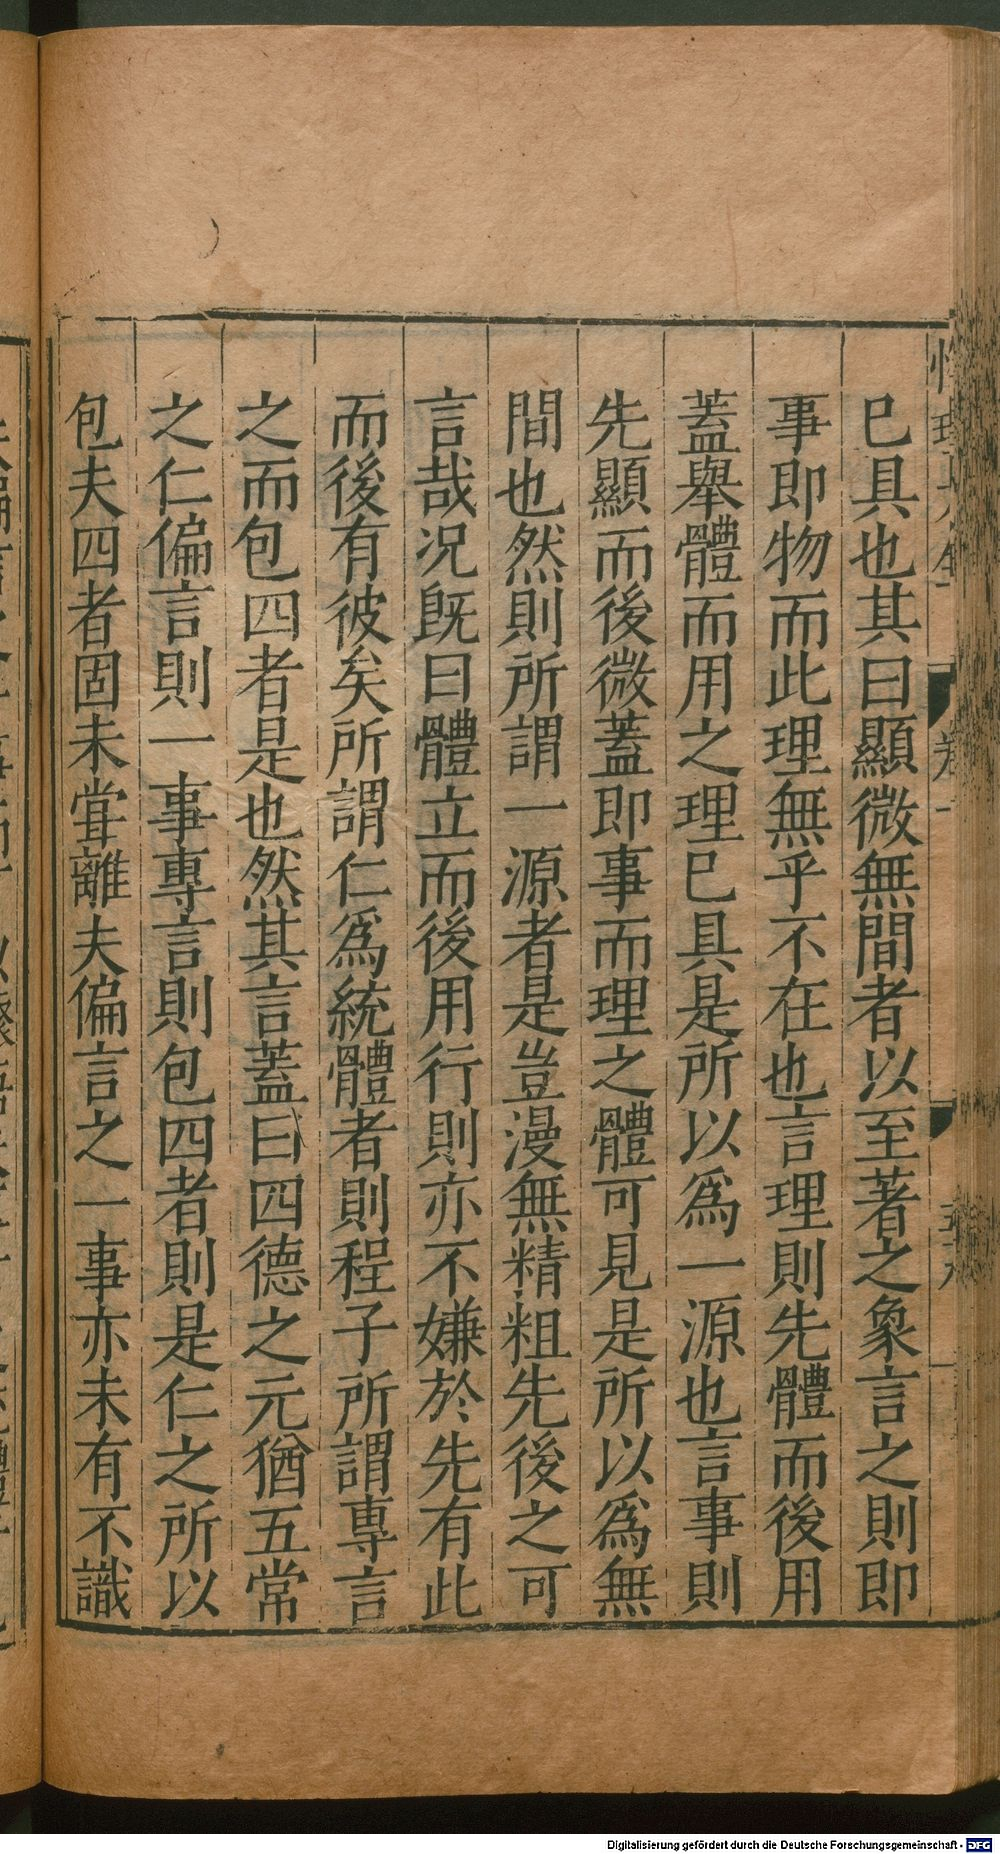 已具也其曰顯微無間者以至著之象言之則即
事即物而此理無乎不在也言理則先體而後用
蓋舉體而用之理已具是所以爲一源也言事則
先顯而後微蓋即事而理之體可見是所以爲無
間也然則所謂一源者是豈漫無精粗先後之可
言哉況旣曰體立而後用行則亦不嫌於先有此
而後有彼矣所謂仁爲統體者則程子所謂專言
之而包四者是也然其言蓋曰四德之元猶五常
之仁偏言則一事專言則包四者則是仁之所以
包夫四者固未甞離夫偏言之一事亦未有不識
Digitalisierung gefördert durch die Deutsche Forschungsgemeinschaft - DFG